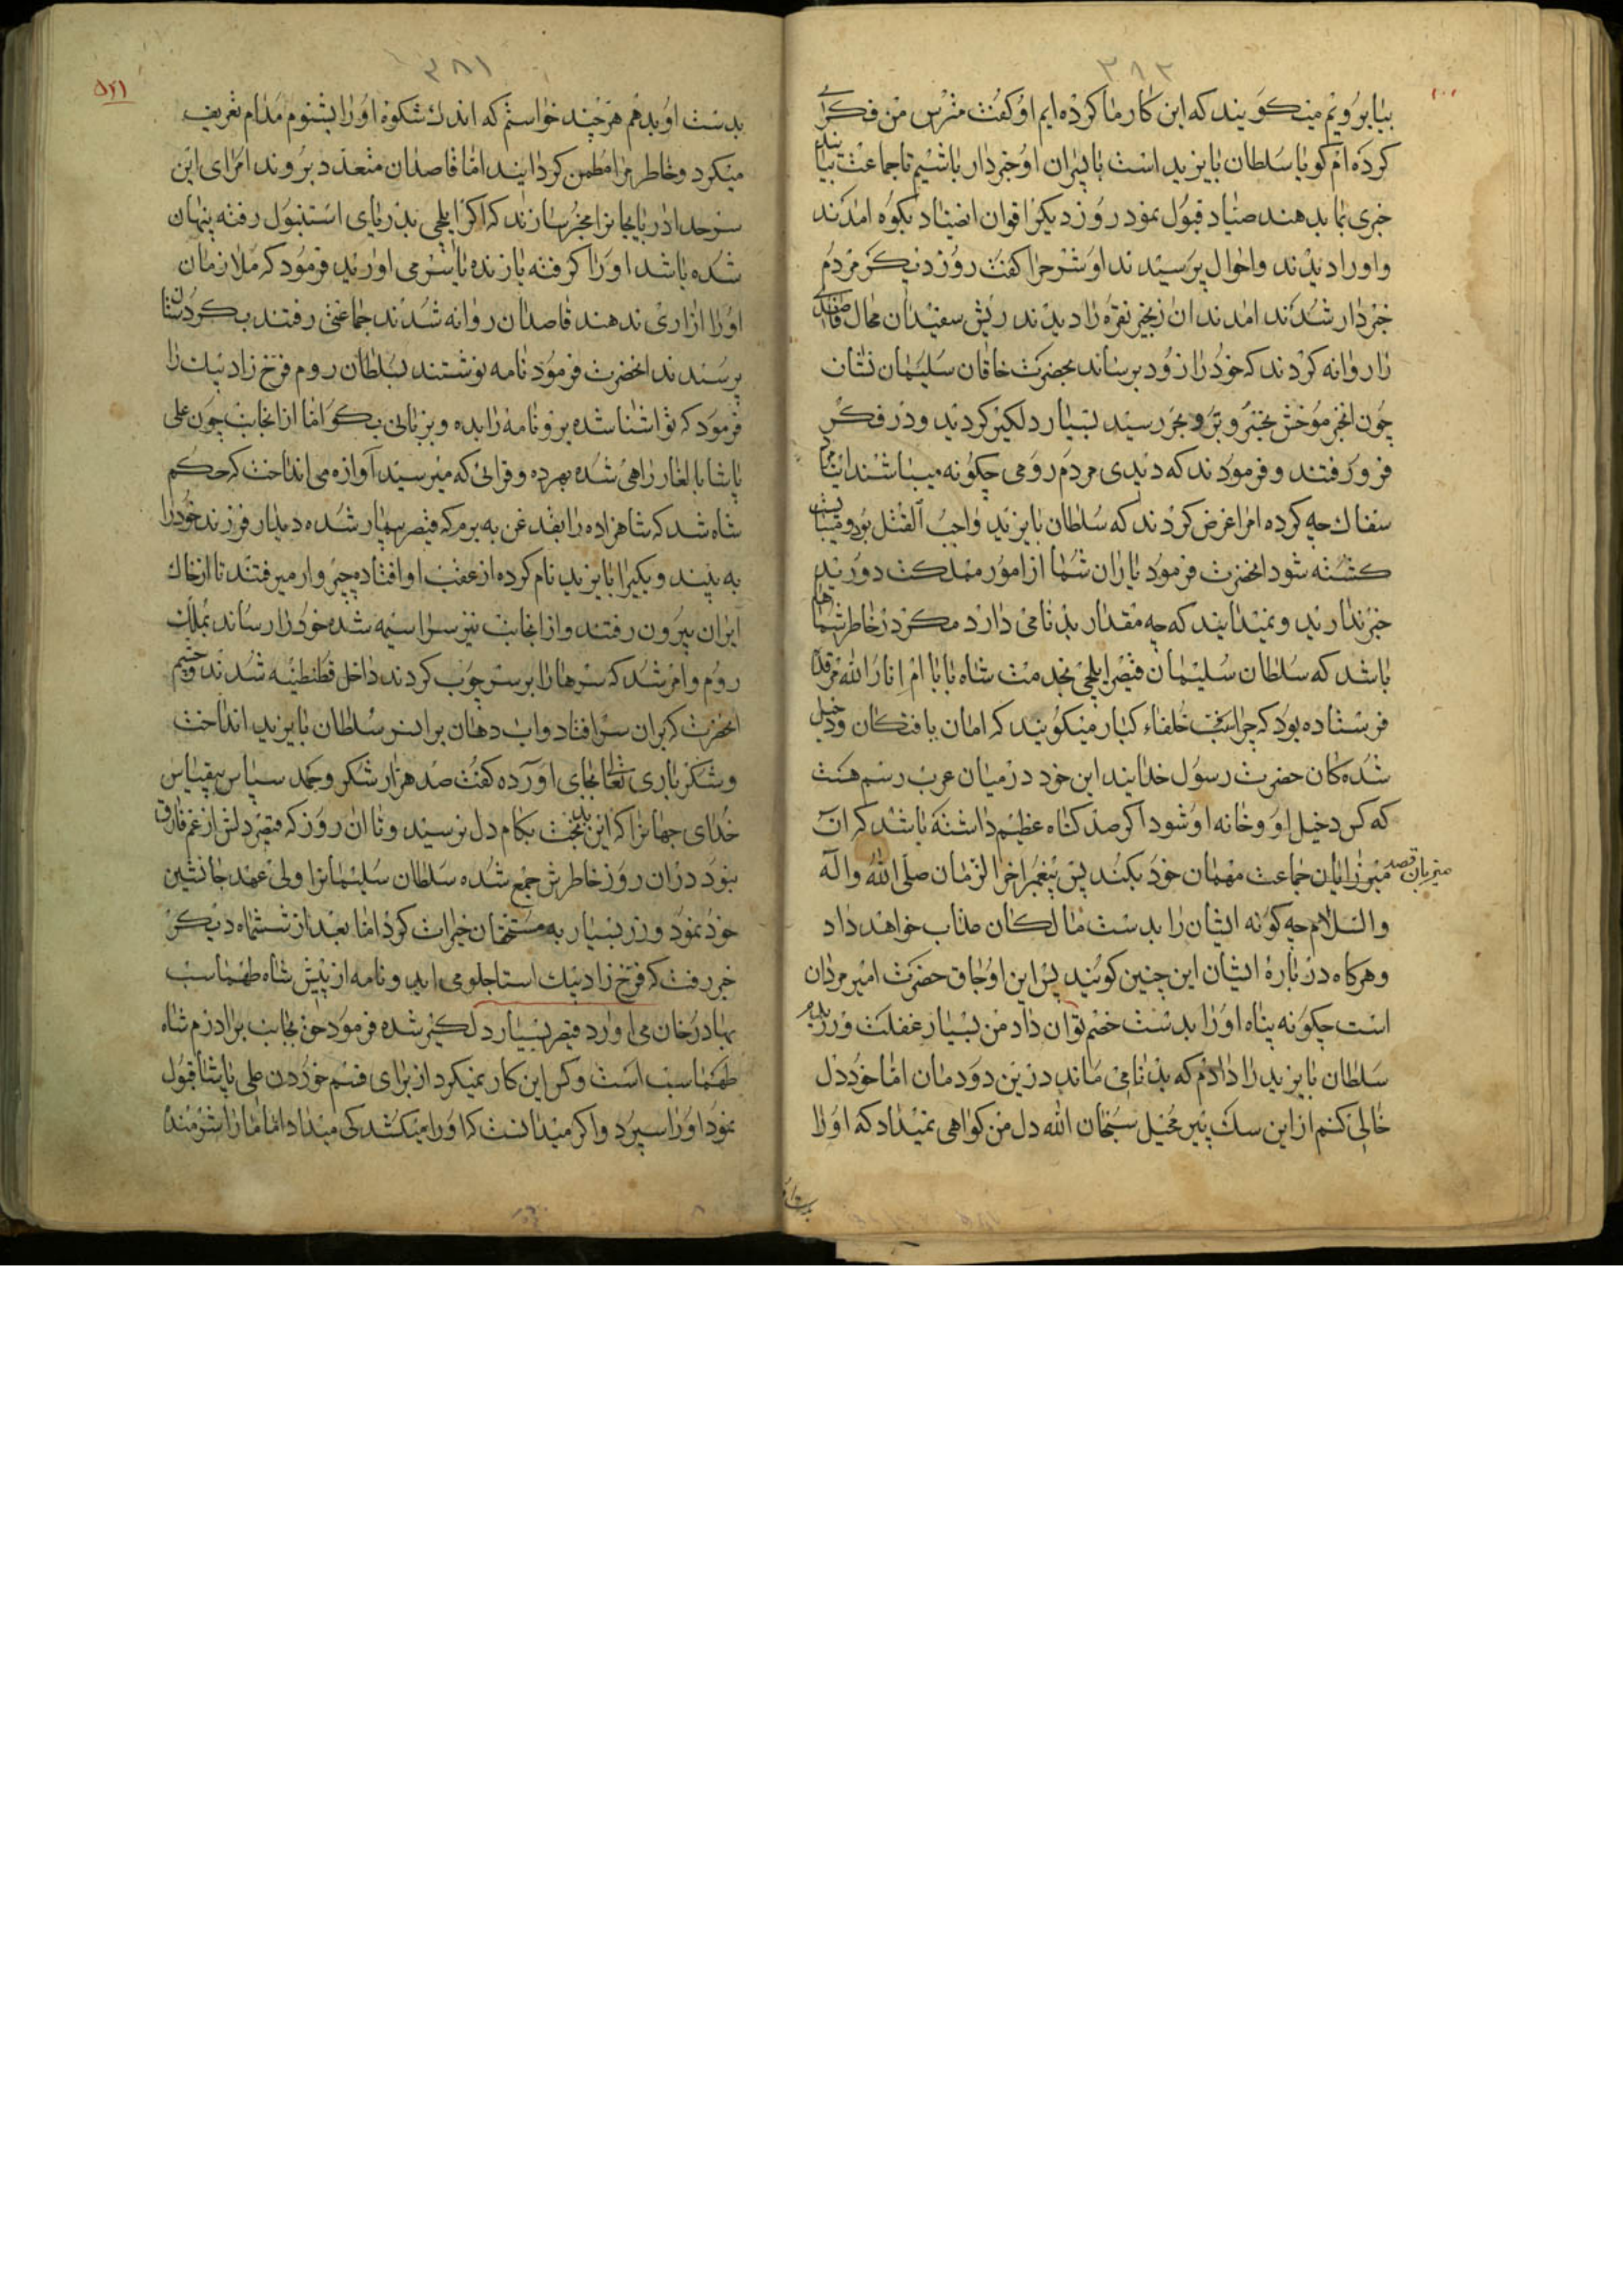 ۳۸۲
بیا برویم میکویند که این کار ما کرده ایم او کفت مترس من فکری
کرده ام کویا سلطان بایزید است با پسران او خبردار باشیم تا جماعت بیایند
خبری بما بدهند صیاد قبول نمود روز دیکر اقوان انصیاد بکوه امدند
و اورا دیدند و احوال پرسیدند او شرح را کفت روز دیکر مردم
خبردار شدند امدند ان زنجیر نقره را دیدند ریش سفیدان محال قاصدی
را روانه کردند که خود را زود برساند بحضرت خاقان سلیمان نشان
چون انخبر موحش بخیر و بر و بحر رسید بسیار دلکیر کردید و در فکر
فرو رفتند و فرمودند که دیدی مردم رومی چکونه میباشند اینمرد
سفاك چه کرده امرا عرض کردند که سلطان بایزید واجب القتل بود و میبایست
کشته شود انحضرت فرمود یاران شما از امور مملکت دورید
خبر ندارید و نمیدانید که چه مقدار بدنامی دارد مکر در خاطر شماها
باشد که سلطان سلیمان قیصر ایلچی بخدمت شاه بابا ام انار الله مرقده
فرستاده بود که چرا سک خلفاء کبار میکویند که امان یافتکان و دخیل
شده کان حضرت رسول خدایند این خود در میان عرب رسم هست
که کس دخیل او و خانه او شود اکر صد کناه عظیم داشته باشد که ان
میزبان قصد
میرزایان جماعت مهمان خود بکنند پس پیغمبر اخر الزمان صلی الله و اله
و السلام چه کونه ایشان را بدست مالکان عذاب خواهد داد
و هرکاه در بارۀ ایشان این چنین کویند پس این اوجاق حضرت امیر مردان
است چکونه پناه اورا بدست خصم توان داد من بسیار غفلت ورزیدم
سلطان بایزید را دادم که بدنامی ماند در این دودمان اما خود دل
خالی کنم از این سك پیر مخیل سبحان الله دل من کواهی نمیداد که اورا
۳۸۱
۵۲۱
بدست او بدهم هرچند خواستم که اندك شکوه اورا بشنوم مدام تعریف
میکرد و خاطر مرا مطمئن کردانید اما قاصدان متعدد بروند امرای این
سرحد اذربایجانرا مخبر سازند که اکر ایلچی بدریای استنبول رفته پنهان
شده باشد اورا کرفته یا زنده یا سر می اورید فرمود که ملازمان
اورا ازاری ندهند قاصدان روانه شدند جماعتی رفتند بکردستان
برسند انحضرت فرمود نامه نوشتند بسلطان روم فرخ زاد بیك را
فرمود که تو اشنا شده برو نامه را بده و بزبانی بکو اما از انجانب چون علی
پاشا بالغار راهی شده بهر ده و قرائی که میرسید آوازه می انداخت که حکم
شاه شد که شاهزاده را بقدغن به برم که قیصر بیمار شده دیدار فرزند خود را
به بیند و یکیرا بایزید نام کرده از عقب او افتاده چپر وار میرفتند تا از خاك
ایران بیرون رفتند و از انجانب نیز سراسیمه شده خود را رساند بمملکت
روم و امر شد که سرها را بر سر چوب کردند داخل قسطنطنیه شدند و چشم
انحضرت که بران سر افتاد و اب دهان بران سر سلطان بایزید انداخت
و شکر باری تعالی بجای آورده کفت صد هزار شکر و حمد سپاس بیقیاس
خدای جهانرا که این بدبخت بکام دل نرسید و تا ان روز که قیصر دلش از غم فارق
نبود دران روز خاطرش جمع شده سلطان سلیمانرا ولی عهد جانشین
خود نمود و زر بسیار به مستحقان خیرات کرد اما بعد از ششماه دیکر
خبر رفت که فرخ زاد بیك استاجلو می اید و نامه از پیش شاه طهماسب
بهادرخان می اورد قیصر بسیار دلکیر شده فرمود حق بجانب برادرم شاه
طهماسب است و کس این کار نمیکرد از برای قسم خوردن علی پاشا قبول
نمود اورا سپرد و اکر میدانست که اورا میکشد کی میداد اما مارا شرمنده